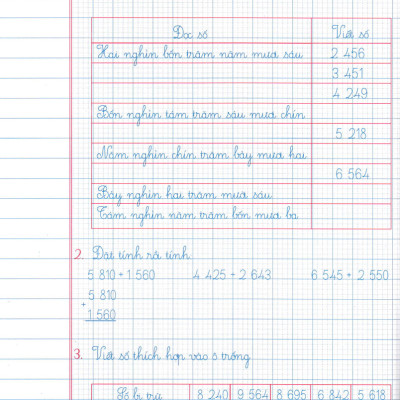 Đọc số Viết số
Hai nghìn bốn trăm năm mươi sáu 2 456
3 451
4 249
Bốn nghìn tám trăm sáu mươi chín
5 218
Năm nghìn chín trăm bảy mươi hai
6 564
Bảy nghìn hai trăm mười sáu
Tám nghìn năm trăm bốn mươi ba
2. Đặt tính rồi tính
5 810 + 1 560 4 425 + 2 643 6 545 + 2 550
5 810
+
1 560
3. Viết số thích hợp vào ô trống
Số bị trừ 8 240 9 564 8 695 6 842 5 618